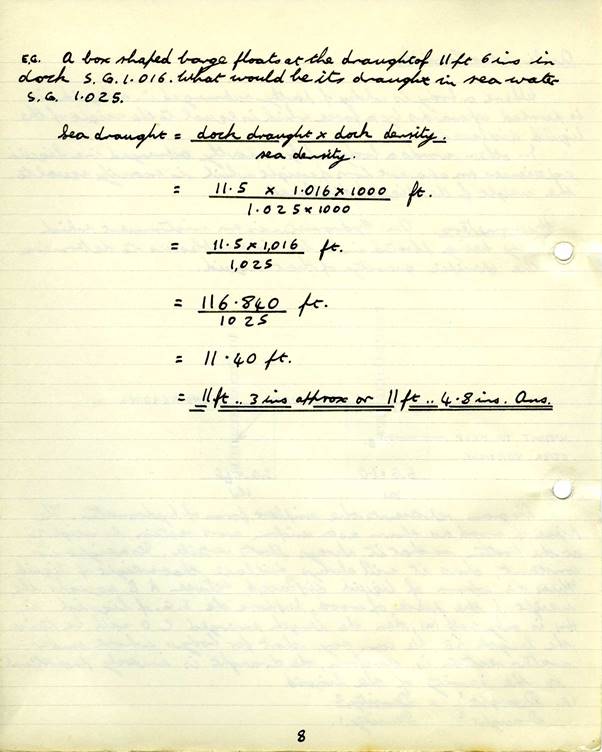 E.G. A box shaped barge floats at the draught of 11 ft 6 ins in
dock S.G. 1.016. What would be its draught in sea water
S.G. 1.025.
Sea draught = dock draught x dock density.
sea density.
= 11.5 x 1.016 x 1000 ft.
1.025 x 1000
= 11.5 x 1,016 ft.
1,025
= 116.840 ft.
1025
= 11.40 ft.
= 11 ft .. 3 ins approx or 11 ft .. 4.8 ins. Ans.
8